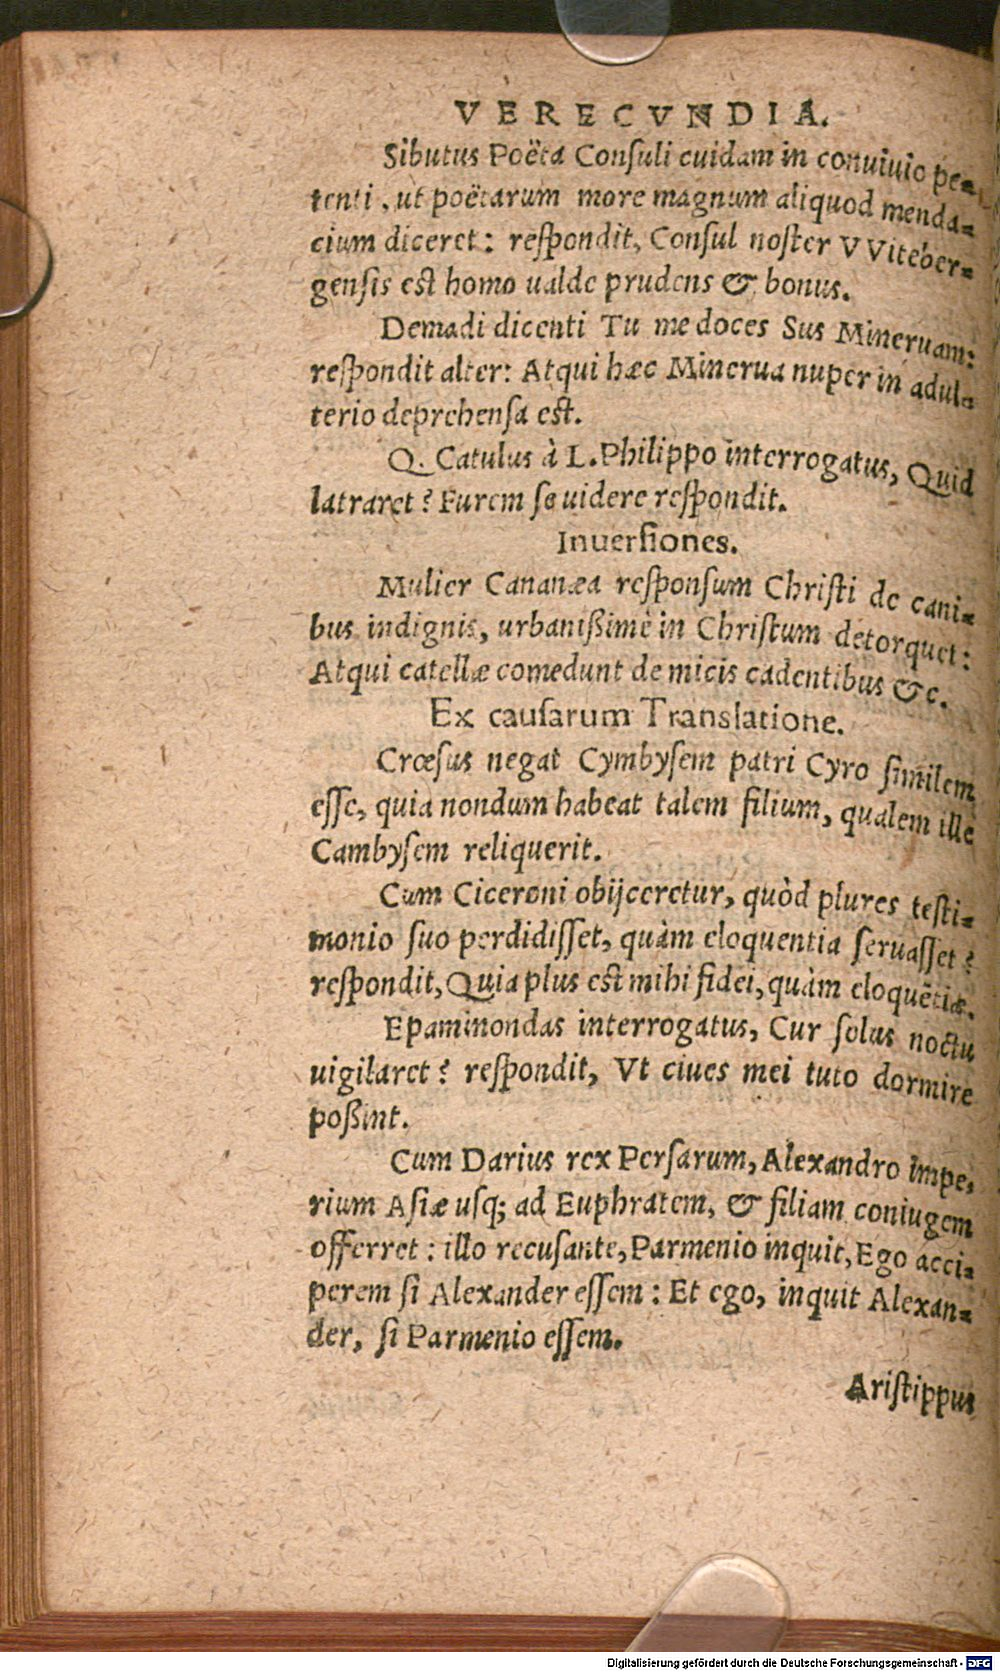 VERECVNDIA.
Sibutus Poëta Conſuli cuidam in conuiuio pe-
tenti, ut poëtarum more magnum aliquod menda-
cium diceret: reſpondit, Conſul noſter VViteber-
genſis est homo ualde prudens & bonus.
Demadi dicenti Tu me doces Sus Mineruam:
reſpondit alter: Atqui hæc Minerua nuper in adul-
terio deprehenſa est.
Q. Catulus à L. Philippo interrogatus, Quid
latraret? Furem ſe uidere reſpondit.
Inuerſiones.
Mulier Cananæa reſponſum Chriſti de cani-
bus indignis, urbanißimè in Chriſtum detorquet:
Atqui catellæ comedunt de micis cadentibus &c.
Ex cauſarum Translatione.
Crœſus negat Cymbyſem patri Cyro ſimilem
eſſe, quia nondum habeat talem filium, qualem ille
Cambyſem reliquerit.
Cum Ciceroni obijceretur, quòd plures teſti-
monio ſuo perdidiſſet, quàm eloquentia ſeruaſſet?
reſpondit, Quia plus est mihi fidei, quàm eloquẽtiæ.
Epaminondas interrogatus, Cur ſolus noctu
uigilaret? reſpondit, Vt ciues mei tuto dormire
poßint.
Cum Darius rex Perſarum, Alexandro Impe-
rium Aſiæ uſq; ad Euphratem, & filiam coniugem
offerret: illo recuſante, Parmenio inquit, Ego acci-
perem ſi Alexander eſſem: Et ego, inquit Alexan-
der, ſi Parmenio eſſem.
Ariſtippus
Digitalisierung gefördert durch die Deutsche Forschungsgemeinschaft - DFG